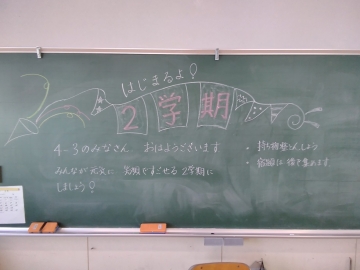 はじまるよ！
2学期
4-3のみなさん おはようございます
みんなが元気に 笑顔ですごせる 2学期に
しましょう！
・持ち物整とんしよう
・宿題は 集めます